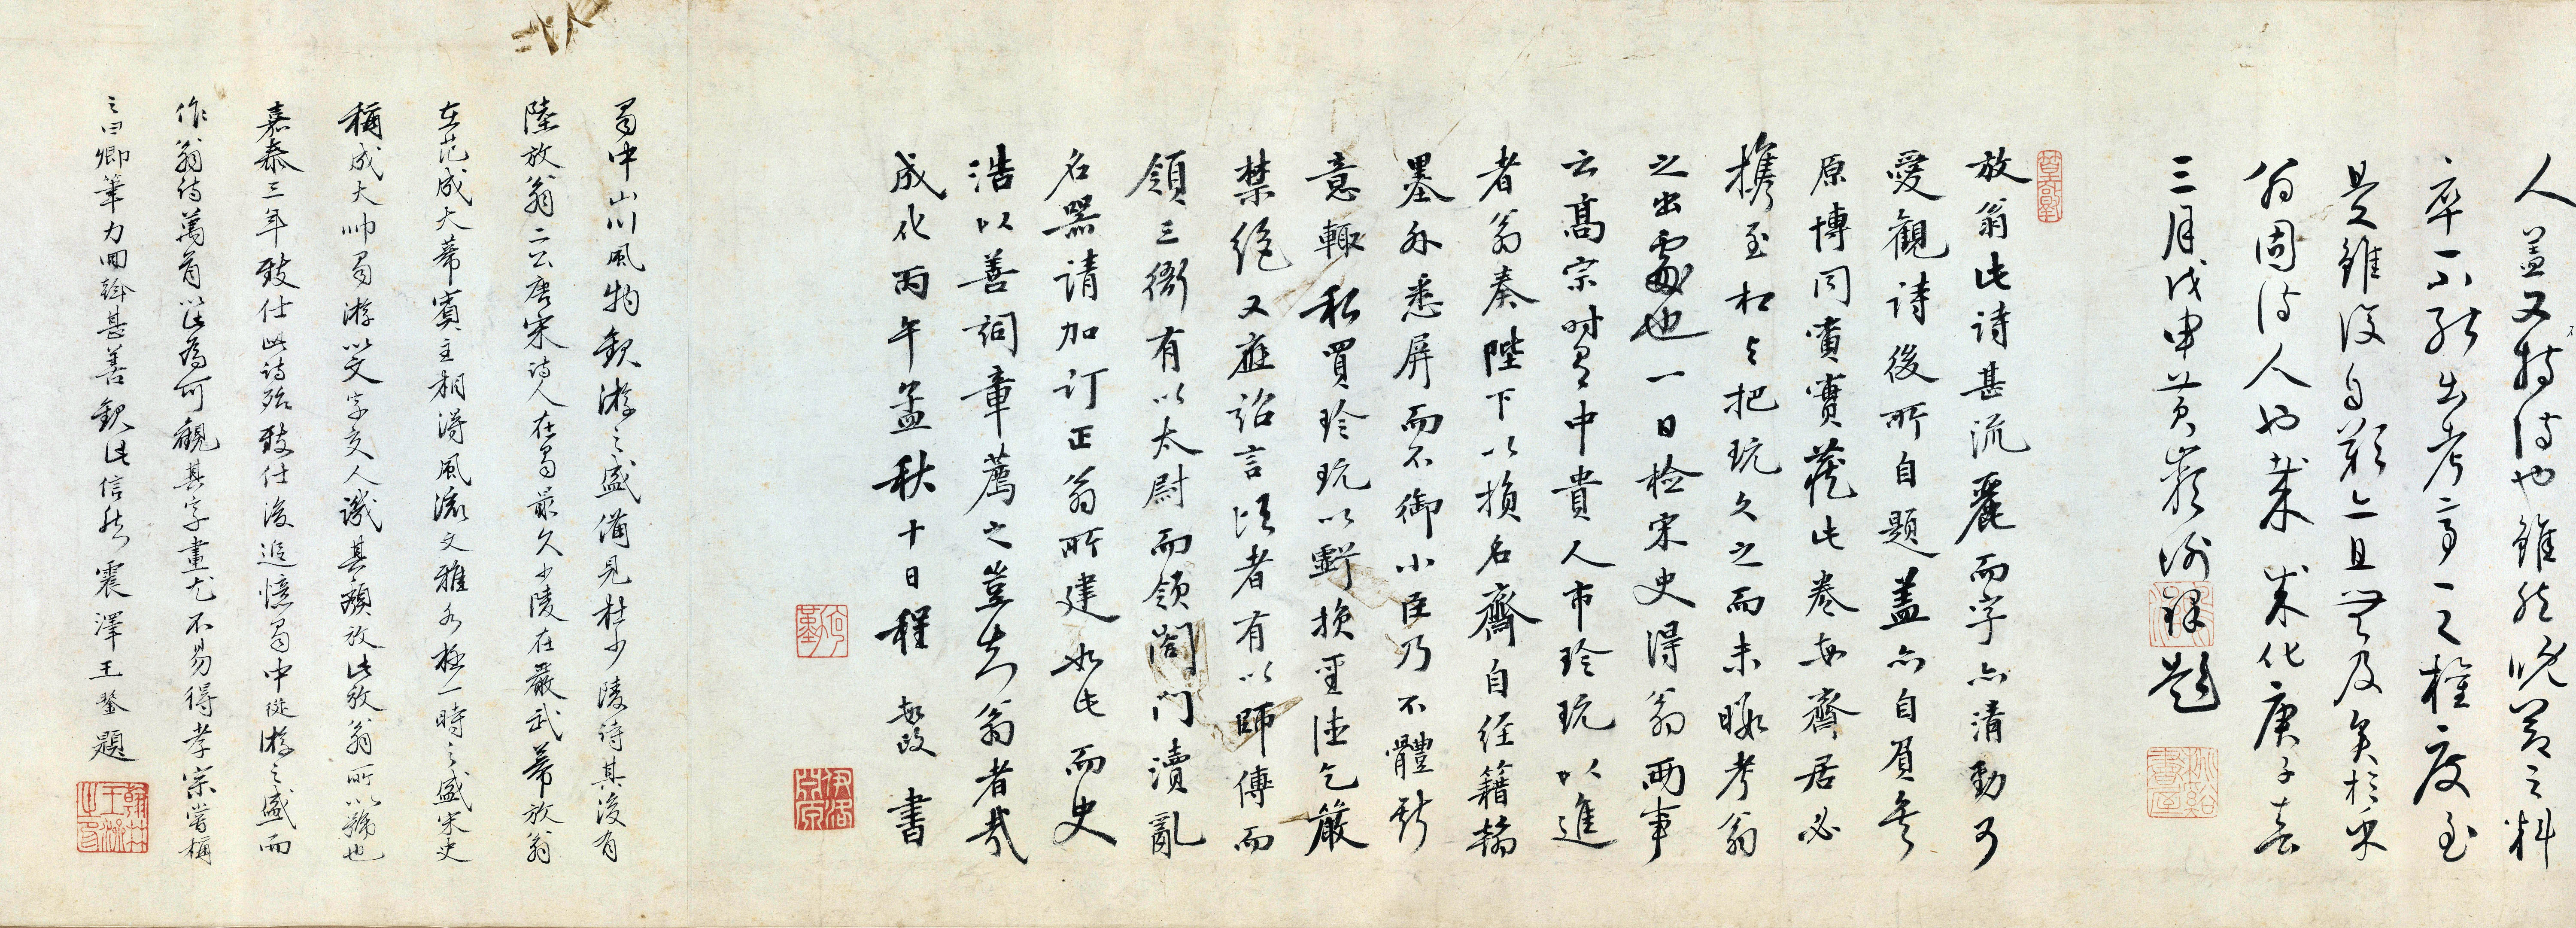 人蓋又特詩也雖然晚蓋之料
卒不能出考亭之權度至
是雖後自歎亦且無及矣於乎
翁固詩人也哉成化庚子春
三月戊申黃巖謝鐸題
放翁此詩甚流麗而字亦清勁可
愛觀詩後所自題蓋亦自負矣
原博同寅寶藏此卷每齋居必
攜至相與把玩久之而未暇考翁
之出處也一日檢宋史得翁兩事
云高宗時有中貴人市珍玩以進
者翁奏陛下以損名齋自經籍翰
墨外悉屏而不御小臣乃不體聖
意輒私買珍玩以虧損聖德乞嚴
禁絕又應詔言頃者有以師傅而
領三衙有以太尉而領閤門瀆亂
名器請加訂正翁所建如此而史
浩以善詞章薦之豈知翁者哉
成化丙午孟秋十日程敏政書
蜀中山川風物游之盛備見杜少陵詩其後有
陸放翁二公唐宋詩人在蜀最久少陵在嚴武幕放翁
在范成大幕賓主相得風流文雅各極一時之盛宋史
稱成大帥蜀游以文字交人譏其頹放此放翁所以號也
嘉泰三年致仕此詩殆致仕後追憶蜀中從游之盛而
作翁詩萬首此為可觀其字畫尤不易得孝宗嘗稱
之曰卿筆力回斡甚善觀此信然震澤王鏊題